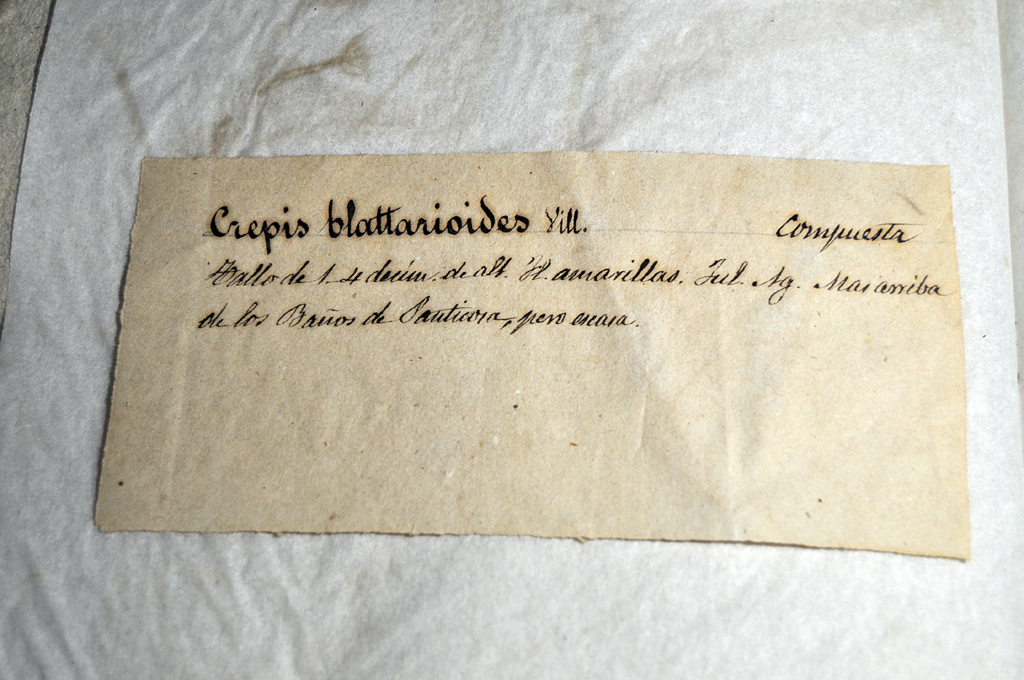 Crepis blattarioides Vill. Compuesta
Tallo de 1-4 decím. de alt. Fl. amarillas. Jul. Ag. Mas arriba
de los Baños de Panticosa, pero escasa.